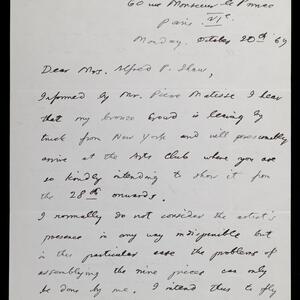 60 rue Monsieur le Prince
Paris VIe.
Monday. October 20th 69
Dear Mrs. Alfred P. Shaw,
Informed by Mr. Piere Matisse I hear
that my bronze Crowd is leaving by
truck from New York and will presumably
arrive at the Arts Club where you are
so kindly intending to show it from
the 28th onwards.
I normally do not consider the artist's
presence in any way indispensible but
in this particular case the problems of
assemblying the nine pieces can only
be done by me. I intend thus to fly